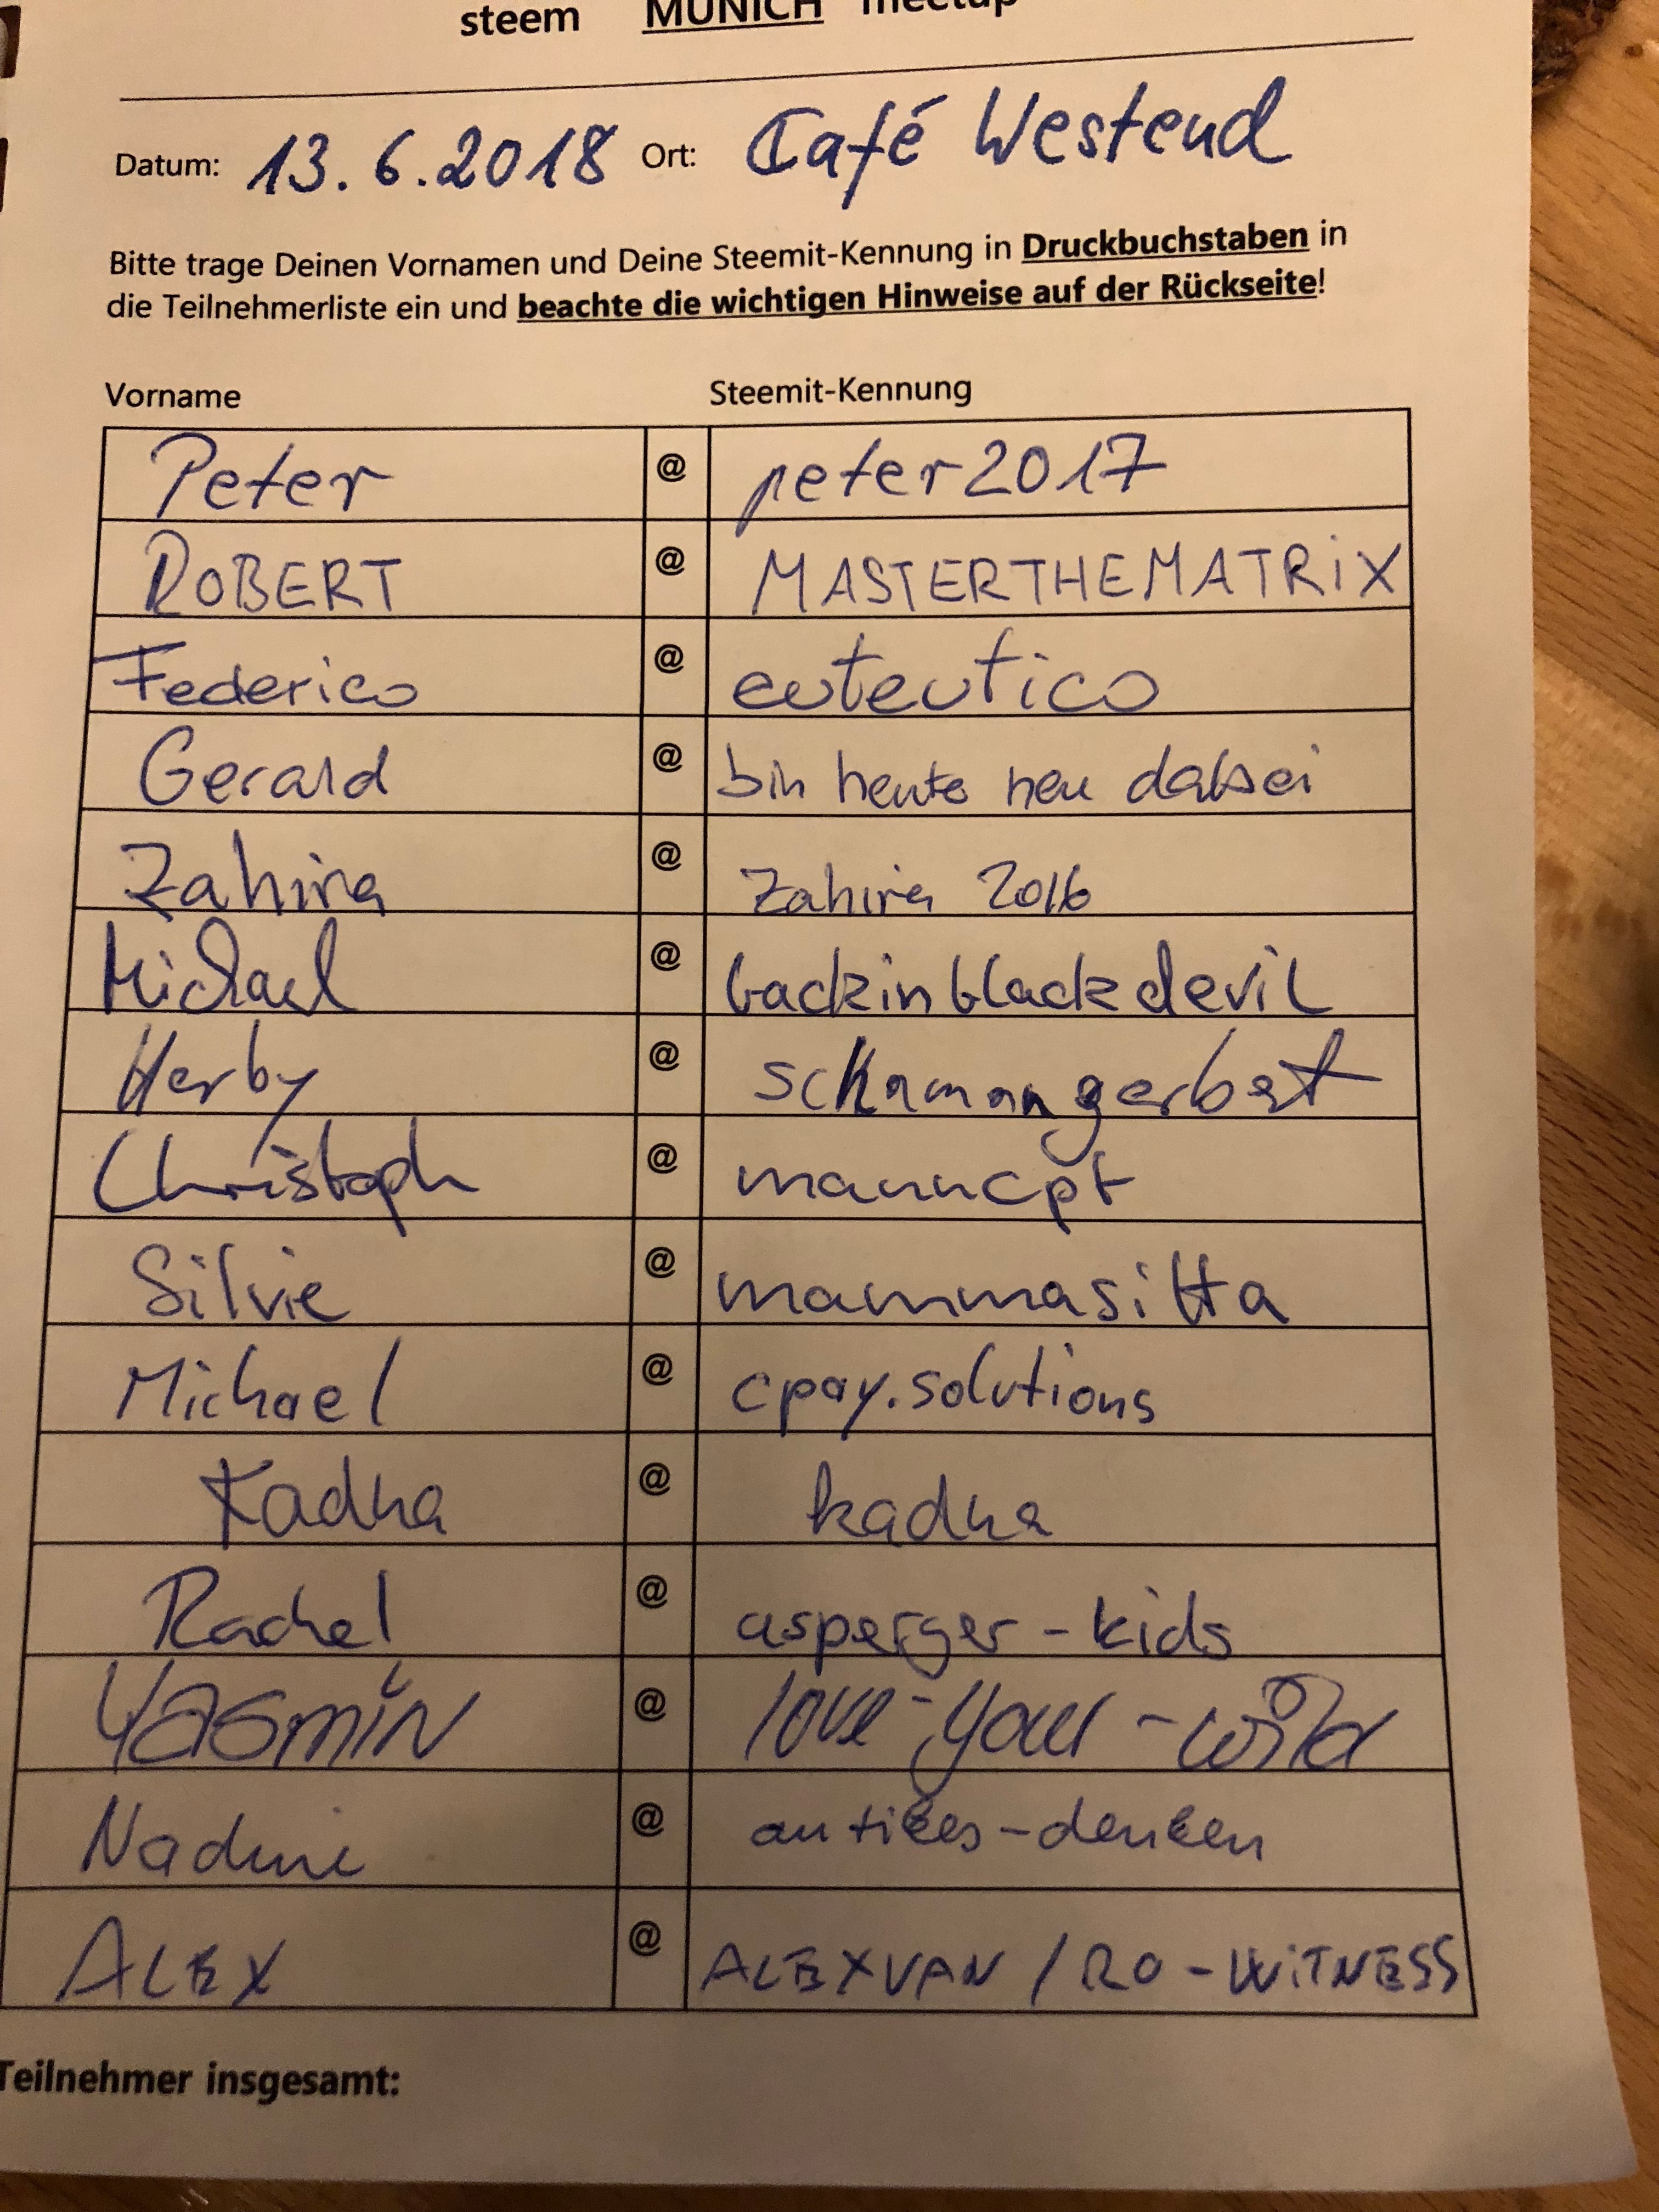 steem MUNICH meetup
Datum: 13.6.2018 Ort: Café Westend
Bitte trage Deinen Vornamen und Deine Steemit-Kennung in Druckbuchstaben in
die Teilnehmerliste ein und beachte die wichtigen Hinweise auf der Rückseite!
Vorname Steemit-Kennung
Peter @ peter2017
ROBERT @ MASTERTHEMATRiX
Federico @ euteutico
Gerard @ bin heute neu dabei
Zahira @ Zahira 2016
Michael @ backinblackdevil
Herby @ schamangerbert
Christoph @ manncpt
Silvie @ mammasitta
Michael @ cpay.solutions
Kadna @ kadna
Rachel @ asperger-kids
Yasmin @ love-your-wild
Nadine @ antikes-denken
ALEX @ ALEXVAN / RO-WiTNESS
Teilnehmer insgesamt: